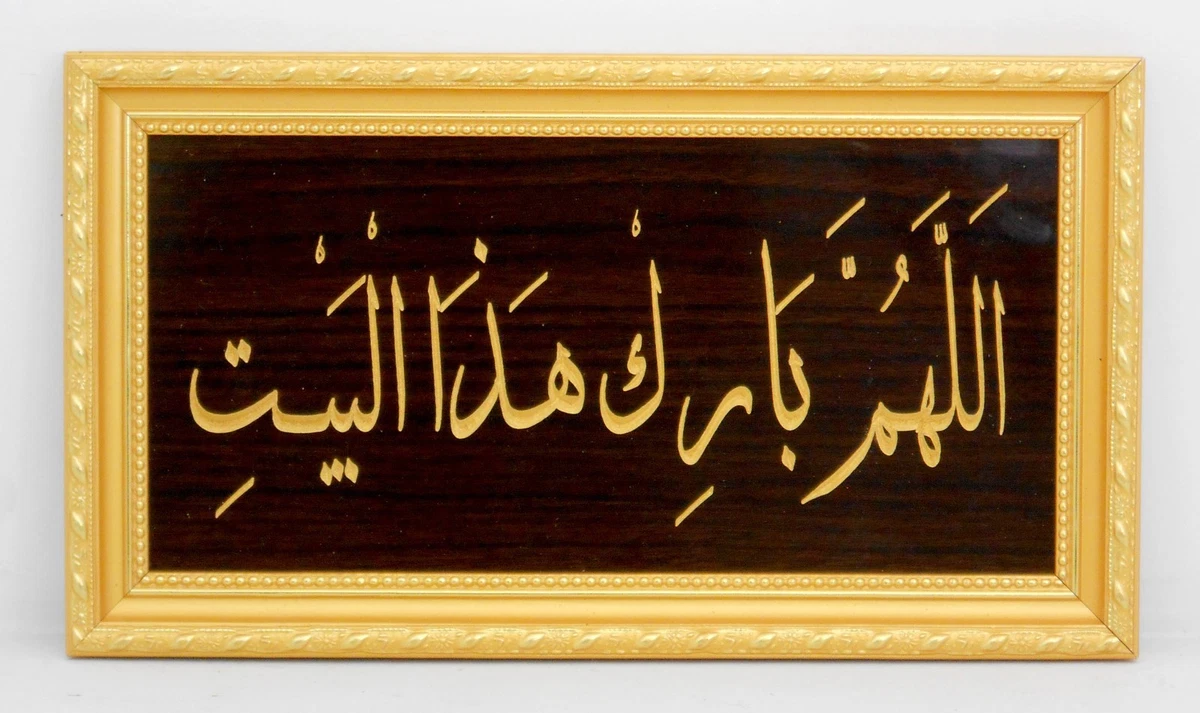 اَللَّهُمَّ بَارِكْ هَذَا الْبَيْتِ